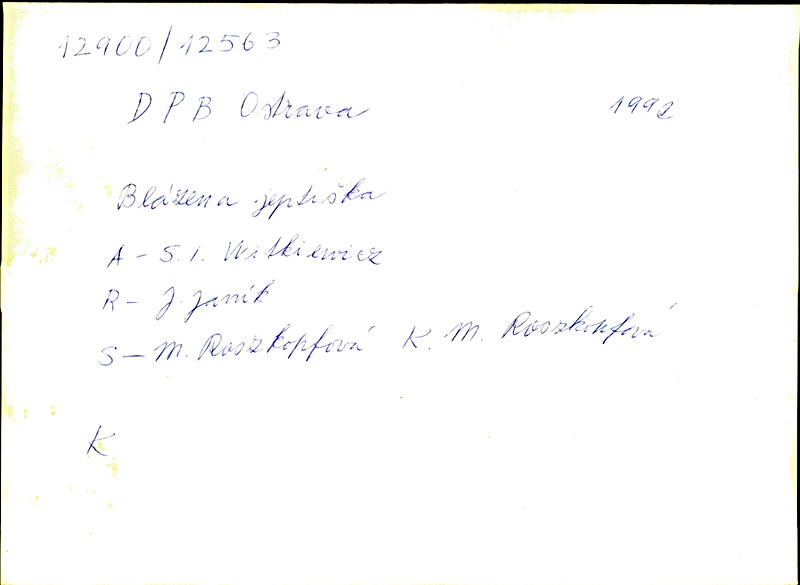 12900/12563
DPB Ostrava 1992
Blázena jeptiška
A - S. I. Witkiewicz
R - J. Janík
S - M. Roszkopfová K. M. Roszkopfová
K